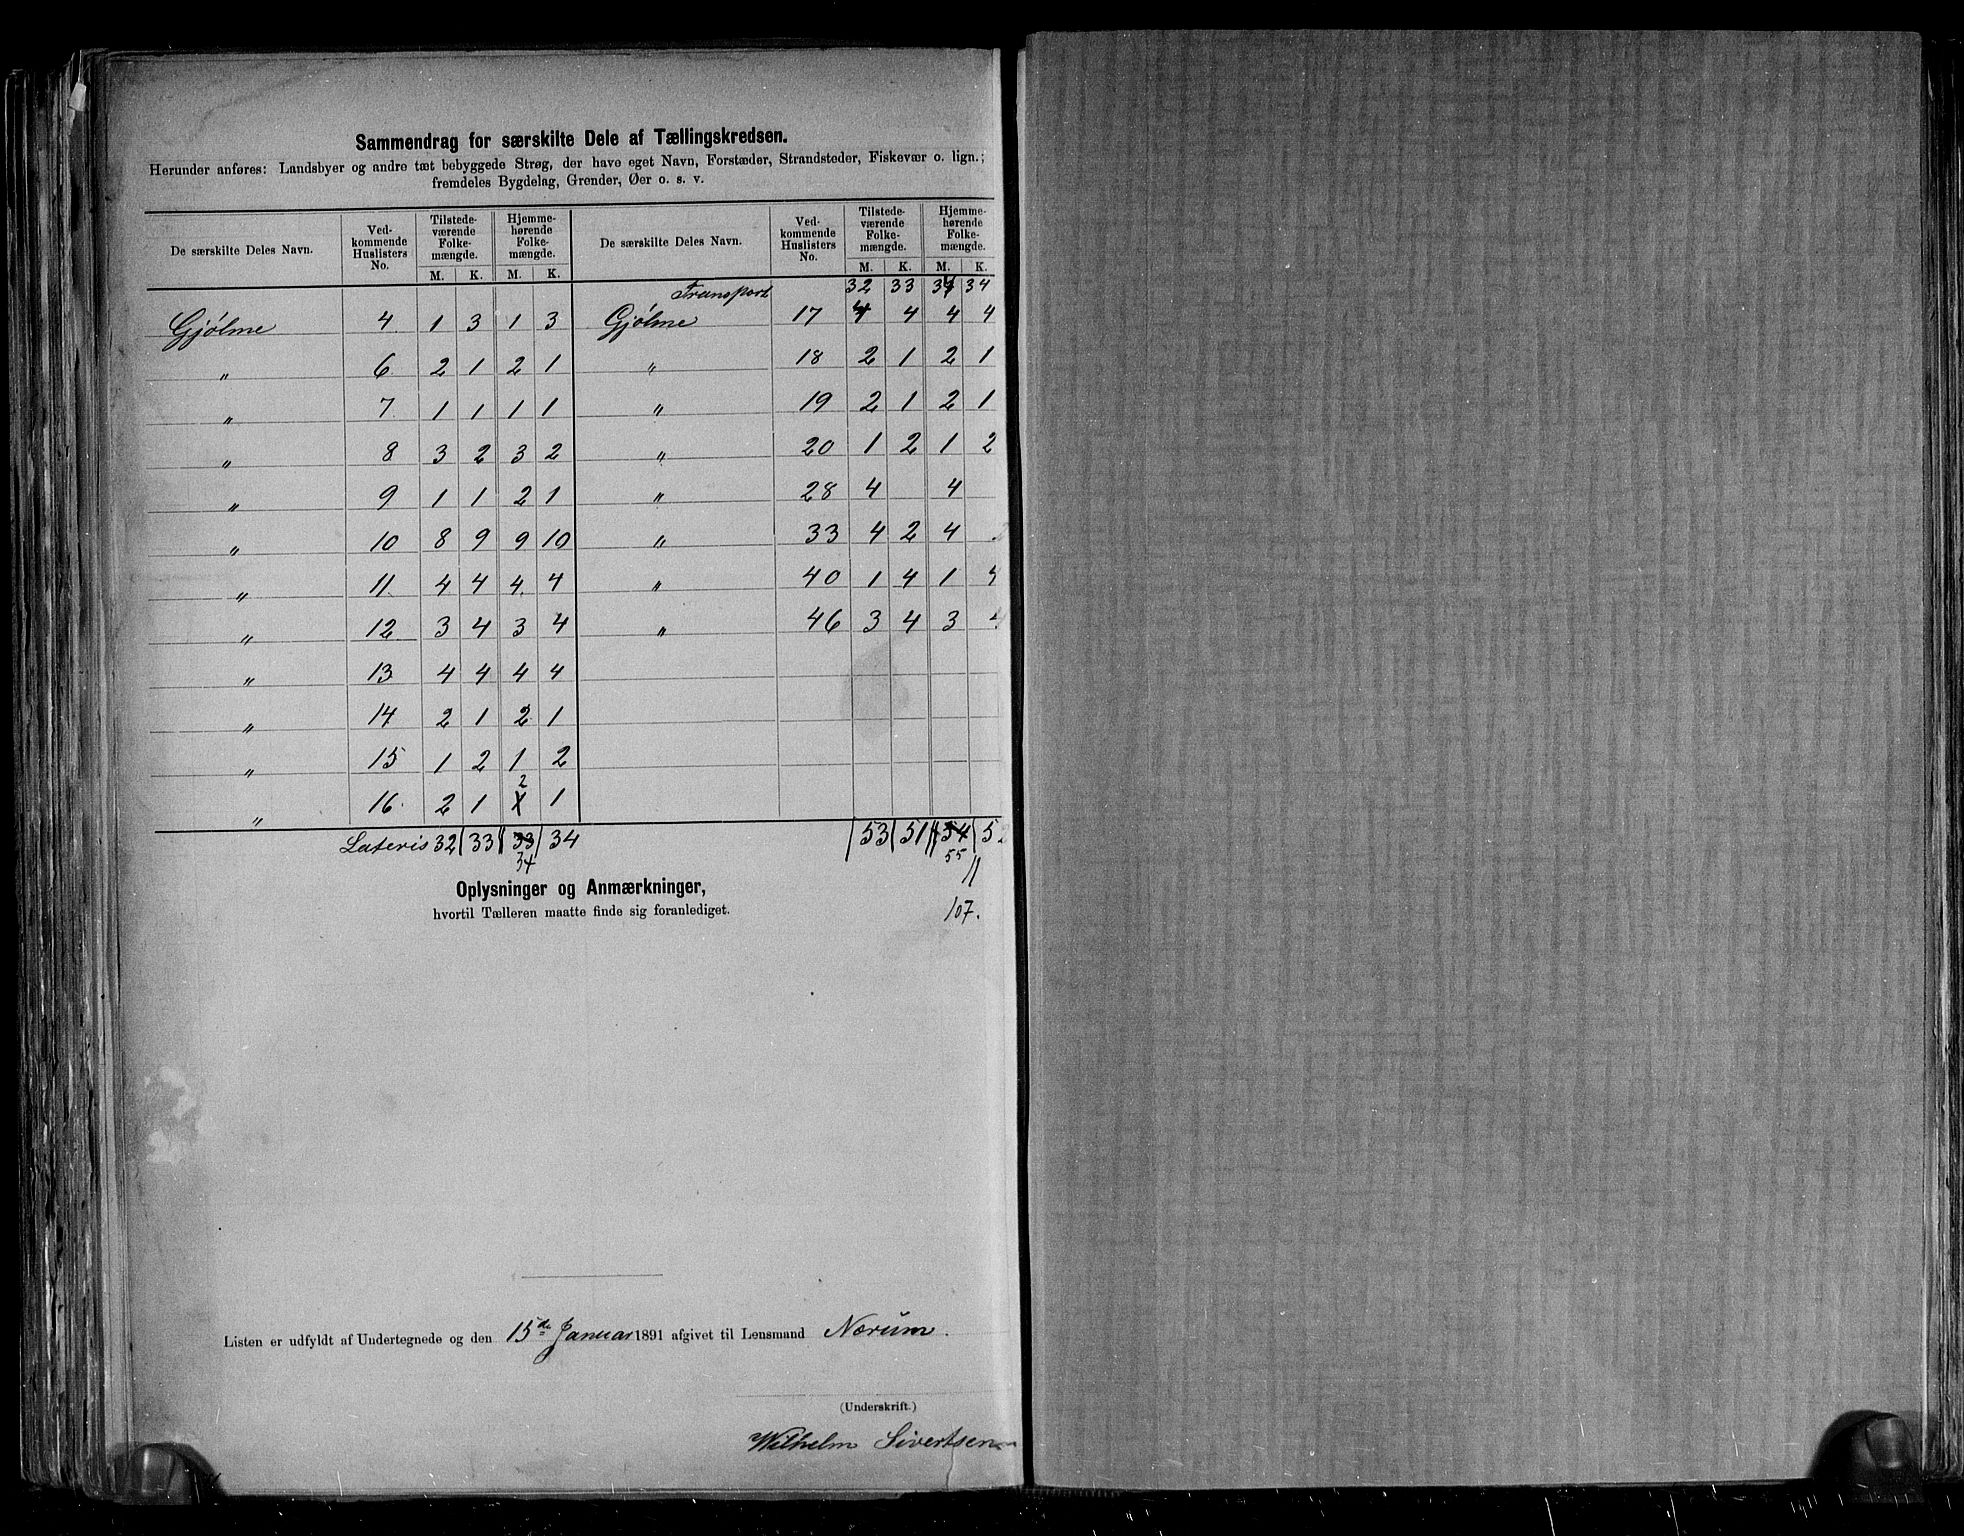 Sammendrag for særskilte Dele af Tællingskredsen.
Herunder anføres: Landsbyer og andre tæt bebyggede Strøg, der have eget Navn, Forstæder, Strandsteder, Fiskevær o. lign.;
fremdeles Bygdelag, Grender, Øer o. s. v.
De særskilte Deles Navn. Ved-kommende Huslisters No. Tilstede-værende Folke-mængde. M. K. Hjemme-hørende Folke-mængde. M. K.
De særskilte Deles Navn. Ved-kommende Huslisters No. Tilstede-værende Folke-mængde. M. K. Hjemme-hørende Folke-mængde. M. K.
Transport 32 33 34 34
Gjølme 4 1 3 1 3 Gjølme 17 4 4 4 4
„ 6 2 1 2 1 „ 18 2 1 2 1
„ 7 1 1 1 1 „ 19 2 1 2 1
„ 8 3 2 3 2 „ 20 1 2 1 2
„ 9 1 1 2 1 „ 28 4 4
„ 10 8 9 9 10 „ 33 4 2 4
„ 11 4 4 4 4 „ 40 1 4 1 4
„ 12 3 4 3 4 „ 46 3 4 3 4
„ 13 4 4 4 4
„ 14 2 1 2 1
„ 15 1 2 1 2
„ 16 2 1 2 1
Lateris 32 33 33 34 53 51 54 52
34 55
107.
Oplysninger og Anmærkninger,
hvortil Tælleren maatte finde sig foranlediget.
Listen er udfyldt af Undertegnede og den 15de Januar 1891 afgivet til Lensmand Nærum.
(Underskrift.)
Wilhelm Sivertsen